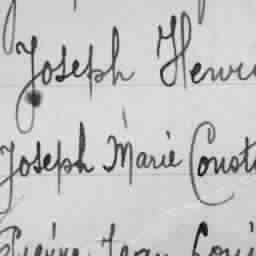 Joseph Henri
Joseph Marie Const
Jean Loui